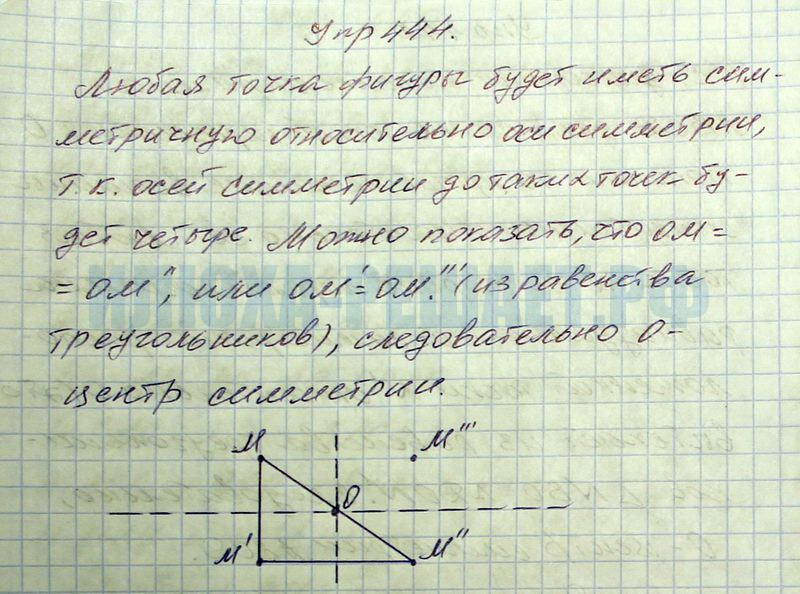 Упр 444.
Любая точка фигуры будет иметь сим-
метричную относительно оси симметрии,
т.к. осей симметрии до таких точек бу-
дет четыре. Можно показать, что OM =
= OM", или OM' = OM"' (из равенства
треугольников), следовательно O-
центр симметрии.
M M"'
O
M' M"